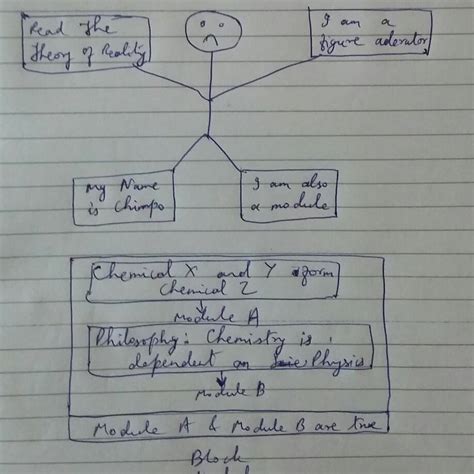 Read the
Theory of Reality
I am a
figure adorator
My Name
is Chimpo
I am also
a module
Chemical X and Y form
Chemical Z
Module A
Philosophy: Chemistry is
dependent on Physics
Module B
Module A & Module B are true
Block